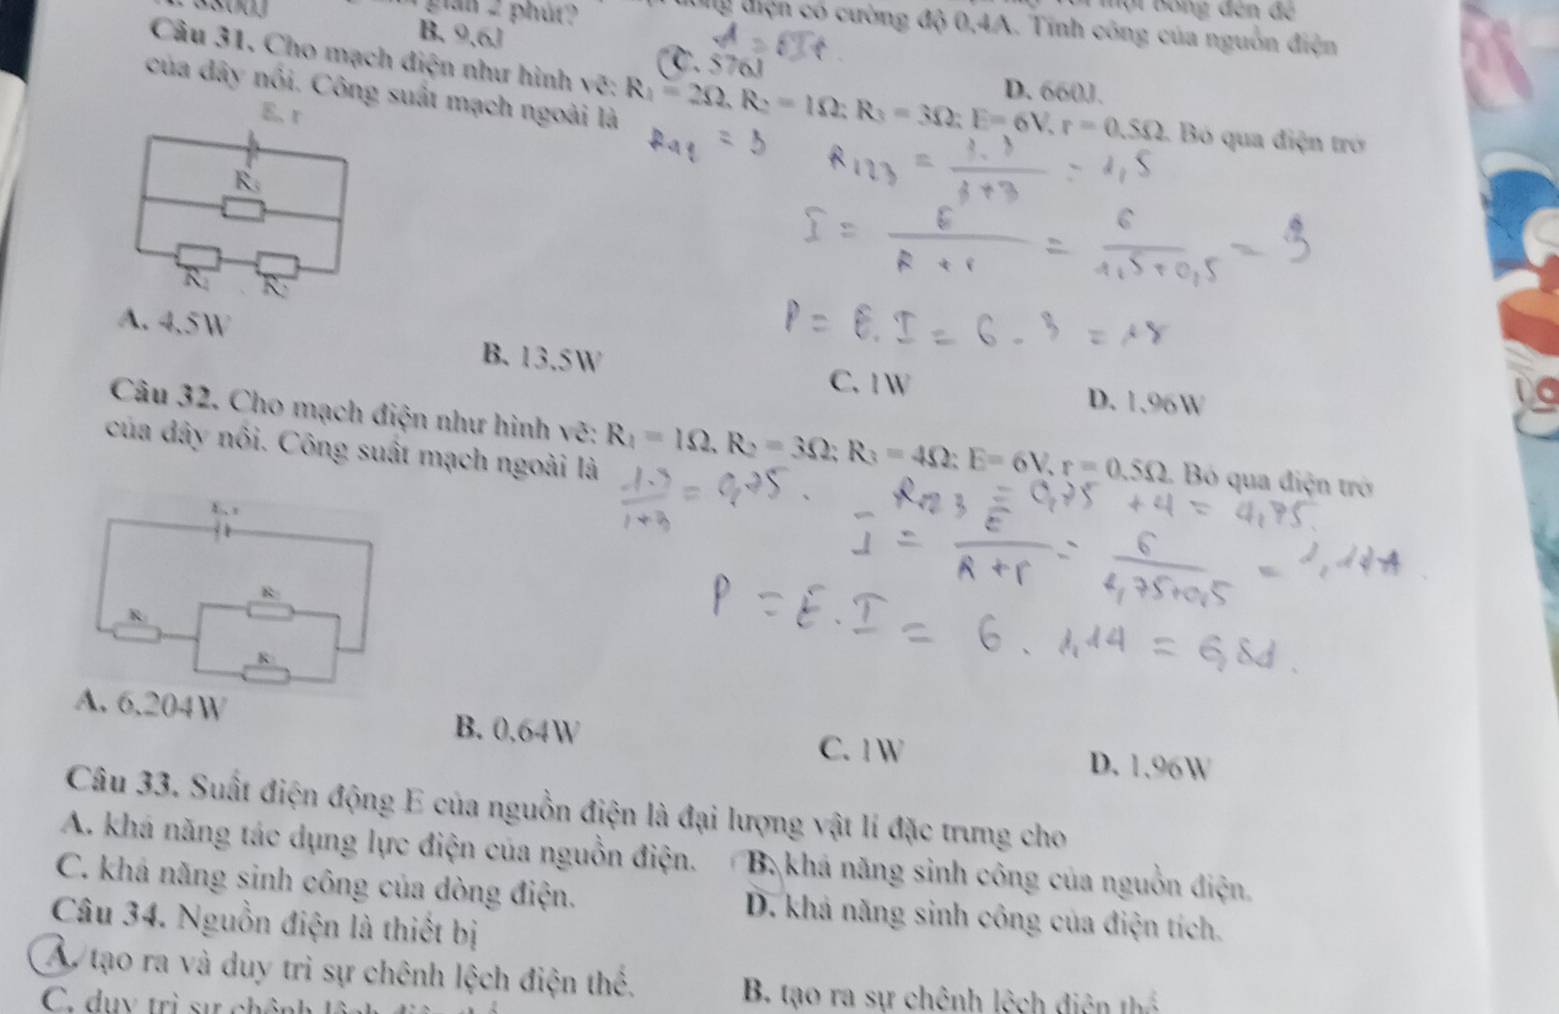 gian 2 phút?
điện có cường độ 0,4A. Tính công của nguồn điện
B. 9,6J
A = EIt.
C. 576J
D. 660J.
Câu 31. Cho mạch điện như hình vẽ: R₁ = 2Ω, R₂ = 1Ω; R₃ = 3Ω; E= 6V, r = 0,5Ω. Bỏ qua điện trở
của dây nối. Công suất mạch ngoài là
= 3
R₁₂₃ = 3.3/3+3 = 1,5
E, r
R₃
R₁
R₂
I = E/R + r = 6/1,5+0,5 = 3
P = E. I = 6 . 3 = 18
A. 4,5W
B. 13,5W
C. 1W
D. 1,96W
Câu 32. Cho mạch điện như hình vẽ: R₁ = 1Ω, R₂ = 3Ω; R₃ = 4Ω; E= 6V, r = 0,5Ω. Bỏ qua điện trở
của dây nối. Công suất mạch ngoài là
1.3/1+3 = 0,75.
R₁₂₃ = 0,75 + 4 = 4,75.
I = E/R+r = 6/4,75+0,5 = 1,14A
P = E.I = 6 . 1,14 = 6,84.
A. 6,204W
B. 0,64W
C. 1W
D. 1,96W
Câu 33. Suất điện động E của nguồn điện là đại lượng vật lí đặc trưng cho
A. khả năng tác dụng lực điện của nguồn điện.
B. khả năng sinh công của nguồn điện.
C. khả năng sinh công của dòng điện.
D. khả năng sinh công của điện tích.
Câu 34. Nguồn điện là thiết bị
A. tạo ra và duy trì sự chênh lệch điện thế.
B. tạo ra sự chênh lệch điện thế
C. duy trì sự chênh lệch